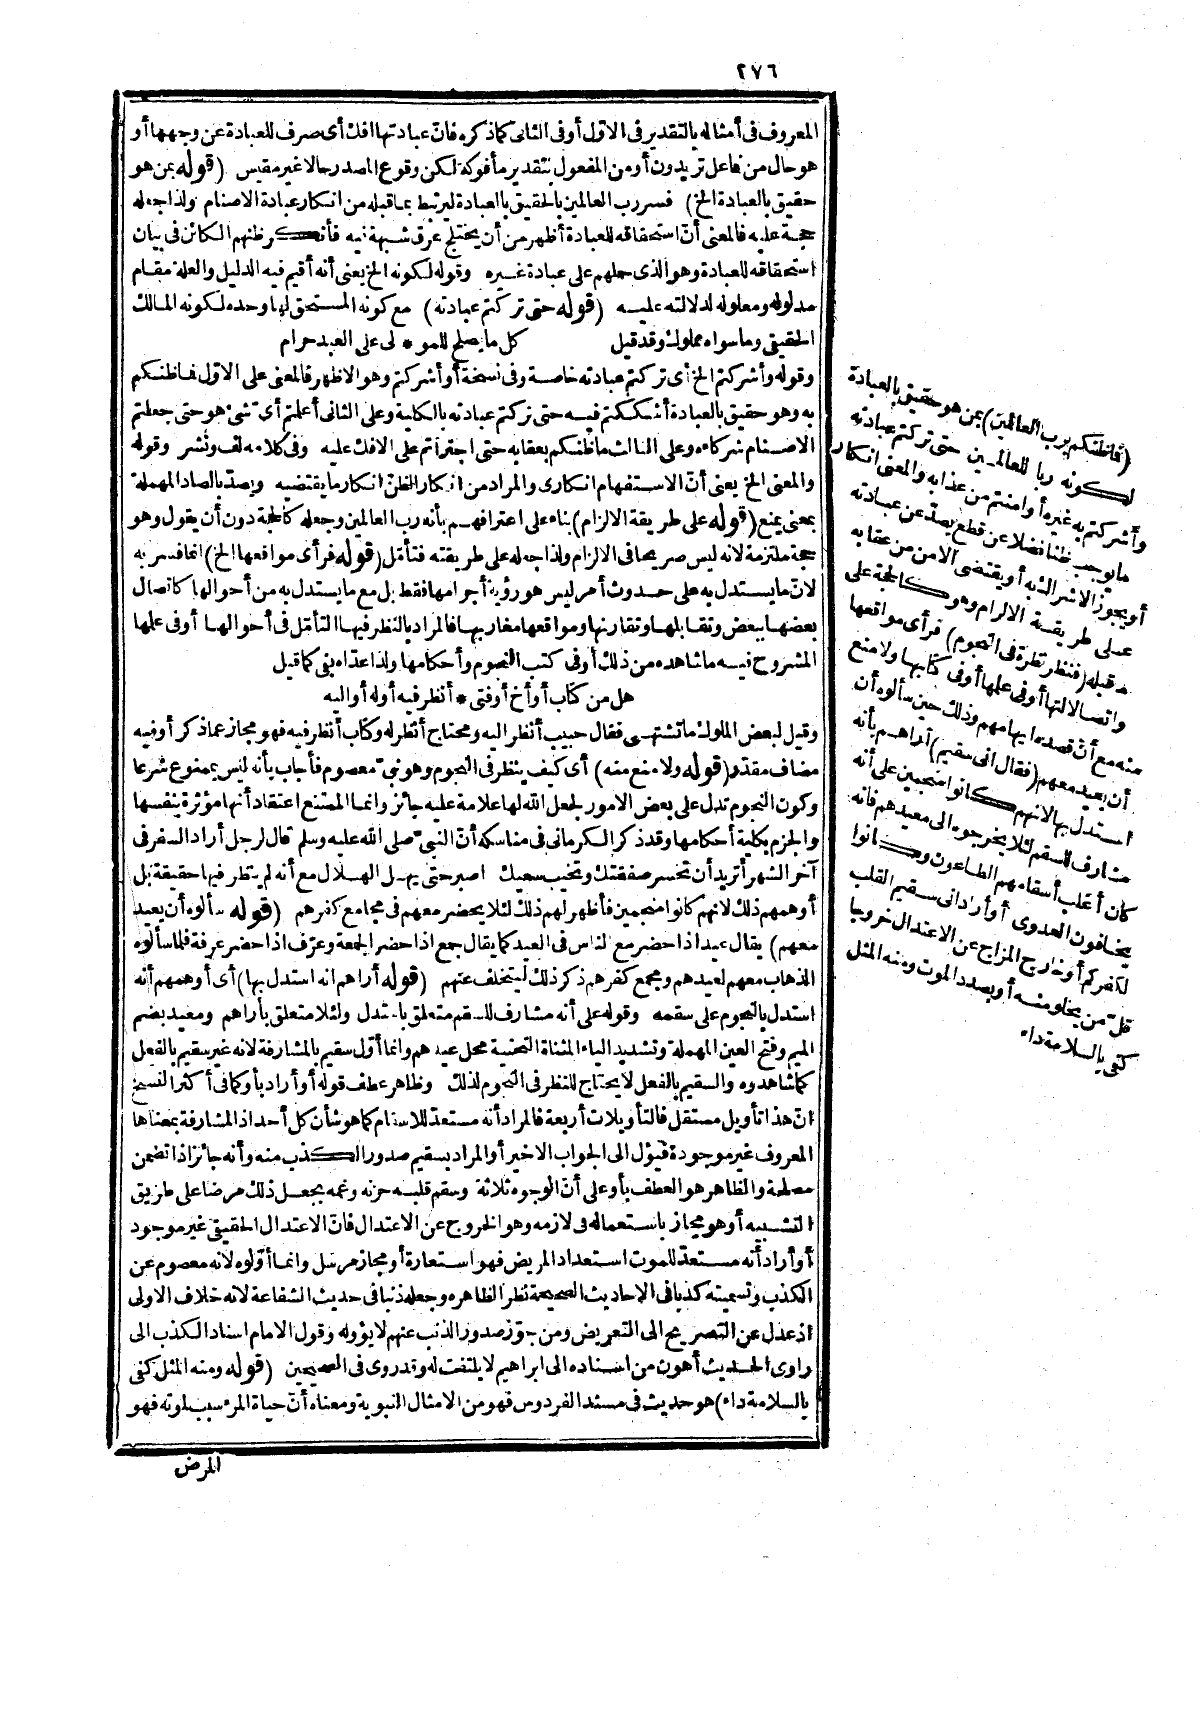 ٢٧٦
المعروف فى أمثاله بالتقدير فى الاوّل أو فى الثانى كما ذكره فانّ عبادتها افك أى صرف للعبادة عن وجهها أو
هو حال من فاعل تريدون أو من المفعول بتقدير مأفوكة لكن وقوع المصدر حالا غير مقيس (قوله بمن هو
حقيق بالعبادة الخ) فسر رب العالمين بالحقيق بالعبادة ليرتبط بما قبله من انكار عبادة الاصنام ولذا جعله
حجة عليه فالمعنى أنّ استحقاقه للعبادة أظهر من أن يختلج عرق شبهة فيه فأنكر ظنهم الكائن فى بيان
استحقاقه للعبادة وهو الذى حملهم على عبادة غيره وقوله لكونه الخ يعنى أنه أقيم فيه الدليل والعلة مقام
مدلوله ومعلوله لدلالته عليه (قوله حتى تركتم عبادته) مع كونه المستحق لها وحده لكونه المالك
الحقيقى وما سواه مملوك وقد قيل كل ما يصلح للمو * لى على العبد حرام
وقوله وأشركتم الخ أى تركتم عبادته خاصة وفى نسخة أو أشركتم وهو الاظهر فالمعنى على الاوّل فما ظنكم
به وهو حقيق بالعبادة أشككتم فيه حتى تركتم عبادته بالكلية وعلى الثانى أعلمتم أىّ شئ هو حتى جعلتم
الاصنام شركاءه وعلى الثالث ما ظنكم بعقابه حتى اجترأتم على الافك عليه وفى كلامه لف ونشر وقوله
والمعنى الخ يعنى أنّ الاستفهام انكارى والمراد من انكار الظنّ انكار ما يقتضيه ويصدّ بالصاد المهملة
بمعنى يمنع (قوله على طريقة الالزام) بناء على اعترافهم بأنه رب العالمين وجعله كالحجة دون أن يقول وهو
حجة ملتزمة لانه ليس صريحا فى الالزام ولذا جعله على طريقته فتأمّل (قوله فرأى مواقعها الخ) انما فسر به
لانّ ما يستدل به على حدوث أمر ليس هو رؤية أجرامها فقط بل مع ما يستدل به من أحوالها كاتصال
بعضها ببعض وتقابلها وتقارنها ومواقعها مغاربها فالمراد بالنظر فيها التأمّل فى أحوالها أو فى علمها
المشروح فيه ما شاهده من ذلك أو فى كتب النجوم وأحكامها ولذا عدّاه بفى كما قيل
هل من كتاب أو أخ أو فتى * أنظر فيه أو له أو اليه
وقيل لبعض الملوك ما تشتهى فقال حبيب أنظر اليه ومحتاج أنظر له وكتاب أنظر فيه فهو مجاز عما ذكر أو فيه
مضاف مقدّر (قوله ولا منع منه) أى كيف ينظر فى النجوم وهو نبىّ معصوم فأجاب بأنه ليس بممنوع شرعا
وكون النجوم تدل على بعض الامور لجعل الله لها علامة عليه جائز وانما الممتنع اعتقاد أنها مؤثرة بنفسها
والجزم بكلية أحكامها وقد ذكر الكرمانى فى مناسكه أنّ النبىّ صلى الله عليه وسلم قال لرجل أراد السفر فى
آخر الشهر أتريد أن تخسر صفقتك وتخيب سعيك اصبر حتى يهل الهلال مع أنه لم ينظر فيها حقيقة بل
أوهمهم ذلك لانهم كانوا منجمين فأظهر لهم ذلك لئلا يحضر معهم فى مجامع كفرهم (قوله سألوه أن يعيد
معهم) يقال عيد اذا حضر مع الناس فى العيد كما يقال جمع اذا حضر الجمعة وعرّف اذا حضر عرفة فلما سألوه
الذهاب معهم لعيدهم ومجمع كفرهم ذكر ذلك ليتخلف عنهم (قوله أراهم انه استدل بها) أى أوهمهم أنه
استدل بالنجوم على سقمه وقوله على أنه مشارف للسقم متعلق باستدل ولئلا متعلق بأراهم ومعيد بضم
الميم وفتح العين المهملة وتشديد الياء المثناة التحتية محل عيدهم وانما أوّل سقيم بالمشارفة لانه غير سقيم بالفعل
كما شاهدوه والسقيم بالفعل لا يحتاج للنظر فى النجوم لذلك وظاهر عطف قوله أو أراد بأو كما فى أكثر النسخ
انّ هذا تأويل مستقل فالتأويلات أربعة فالمراد أنه مستعدّ للاسقام كما هو شأن كل أحد اذ المشارفة بمعناها
المعروف غير موجودة فيؤل الى الجواب الاخير أو المراد بسقيم صدور الكذب منه وأنه جائز اذا تضمن
مصلحة والظاهر هو العطف بأو على أنّ الوجوه ثلاثة وسقم قلبه حزنه وغمه بجعل ذلك مرضا على طريق
التشبيه أو هو مجاز باستعماله فى لازمه وهو الخروج عن الاعتدال فانّ الاعتدال الحقيقى غير موجود
أو أراد أنه مستعدّ للموت استعداد المريض فهو استعارة أو مجاز مرسل وانما أوّلوه لانه معصوم عن
الكذب وتسميته كذبا فى الاحاديث الصحيحة نظرا لظاهره وجعله ذنبا فى حديث الشفاعة لانه خلاف الاولى
اذ عدل عن التصريح الى التعريض ومن جوّز صدور الذنب عنهم لا يؤوله وقول الامام اسناد الكذب الى
راوى الحديث أهون من اسناده الى ابراهيم لا يلتفت له وقد روى فى الصحيحين (قوله ومنه المثل كفى
بالسلامة داء) هو حديث فى مسند الفردوس فهو من الامثال النبوية ومعناه أنّ حياة المرء سبب لموته فهو
المرض
(فما ظنكم برب العالمين) بمن هو حقيق بالعبادة
لكونه ربا للعالمين حتى تركتم عبادته
وأشركتم به غيره أو أمنتم من عذابه والمعنى انكار
ما يوجب ظنا فضلا عن قطع يصدّ عن عبادته
أو يجوز الاشراك به أو يقتضى الامن من عقابه
على طريقة الالزام وهو كالحجة على
ما قبله (فنظر نظرة فى النجوم) فرأى مواقعها
واتصالاتها أو فى علمها أو فى كتابها ولا منع
منه مع أنّ قصده ايهامهم وذلك حين سألوه أن
أن يعيد معهم (فقال انى سقيم) أراهم بأنه
استدل بها لانهم كانوا منجمين على أنه
مشارف للسقم لئلا يخرجوه الى معيدهم فانه
كان أغلب أسقامهم الطاعون وكانوا
يخافون العدوى أو أراد انى سقيم القلب
لكفركم أو خارج المزاج عن الاعتدال خروجا
قلّ من يخلو منه أو بصدد الموت ومنه المثل
كفى بالسلامة داء